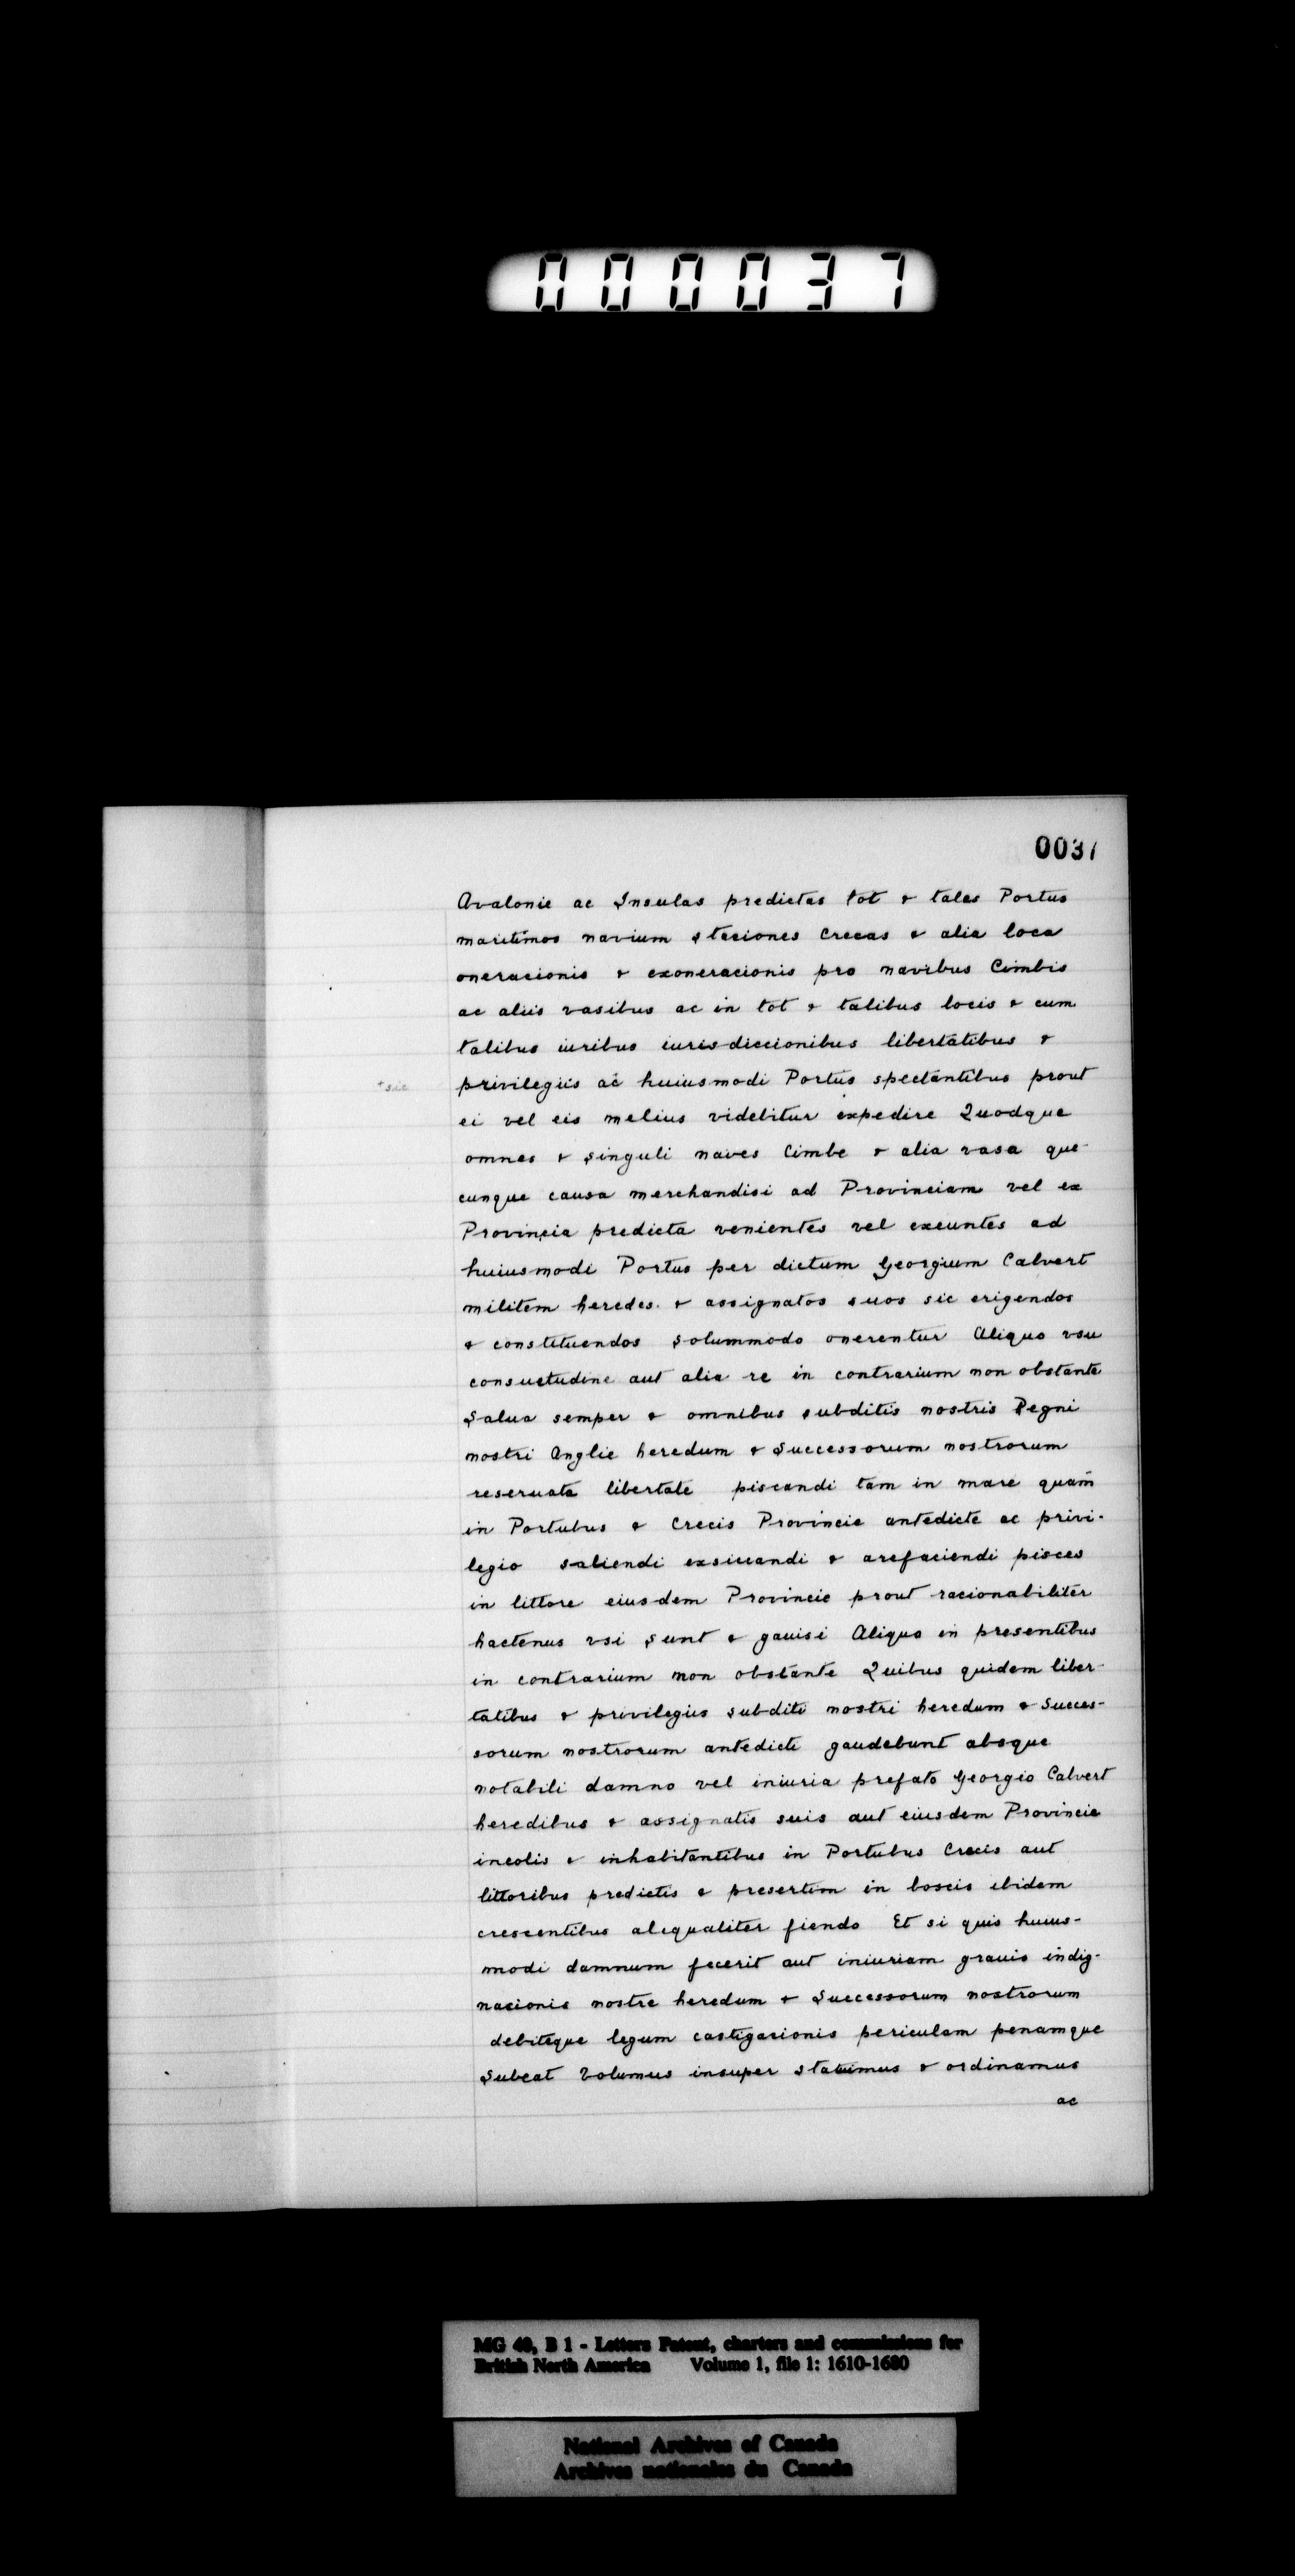 000037
0037
Avalonie ac Insulas predictas tot & tales Portus
maritimos navium staciones Crecas & alia loca
oneracionis & exoneracionis pro navibus Cimbis
ac aliis vasibus ac in tot & talibus locis & cum
talibus iuribus iurisdiccionibus libertatibus &
+sic
privilegiis ac huiusmodi Portus spectantibus prout
ei vel eis melius videbitur expedire Quodque
omnes & singuli naves Cimbe & alia vasa que-
cunque causa merchandisi ad Provinciam vel ex
Provincia predicta venientes vel exeuntes ad
huiusmodi Portus per dictum Georgium Calvert
militem heredes & assignatos suos sic erigendos
& constituendos solummodo onerentur Aliquo vsu
consuetudine aut alia re in contrarium non obstante
Salua semper & omnibus subditis nostris Regni
nostri Anglie heredum & Successorum nostrorum
reseruata libertate piscandi tam in mare quam
in Portubus & Crecis Provincie antedicte ac privi-
legio saliendi exsiccandi & arefaciendi pisces
in littore eiusdem Provincie prout racionabiliter
hactenus vsi sunt & gauisi Aliquo in presentibus
in contrarium non obstante Quibus quidem liber-
tatibus & privilegiis subditi nostri heredum & Succes-
sorum nostrorum antedicti gaudebunt absque
notabili damno vel iniuria prefato Georgio Calvert
heredibus & assignatis suis aut eiusdem Provincie
incolis & inhabitantibus in Portubus Crecis aut
littoribus predictis & presertim in boscis ibidem
crescentibus aliqualiter fiendo Et si quis huius-
modi damnum fecerit aut iniuriam grauis indig-
nacionis nostre heredum & Successorum nostrorum
debiteque legum castigacionis periculam penamque
Subeat Volumus insuper statuimus & ordinamus
ac
MG 40, B 1 - Letters Patent, charters and commissions for
British North America Volume 1, file 1: 1610-1680
National Archives of Canada
Archives nationales du Canada